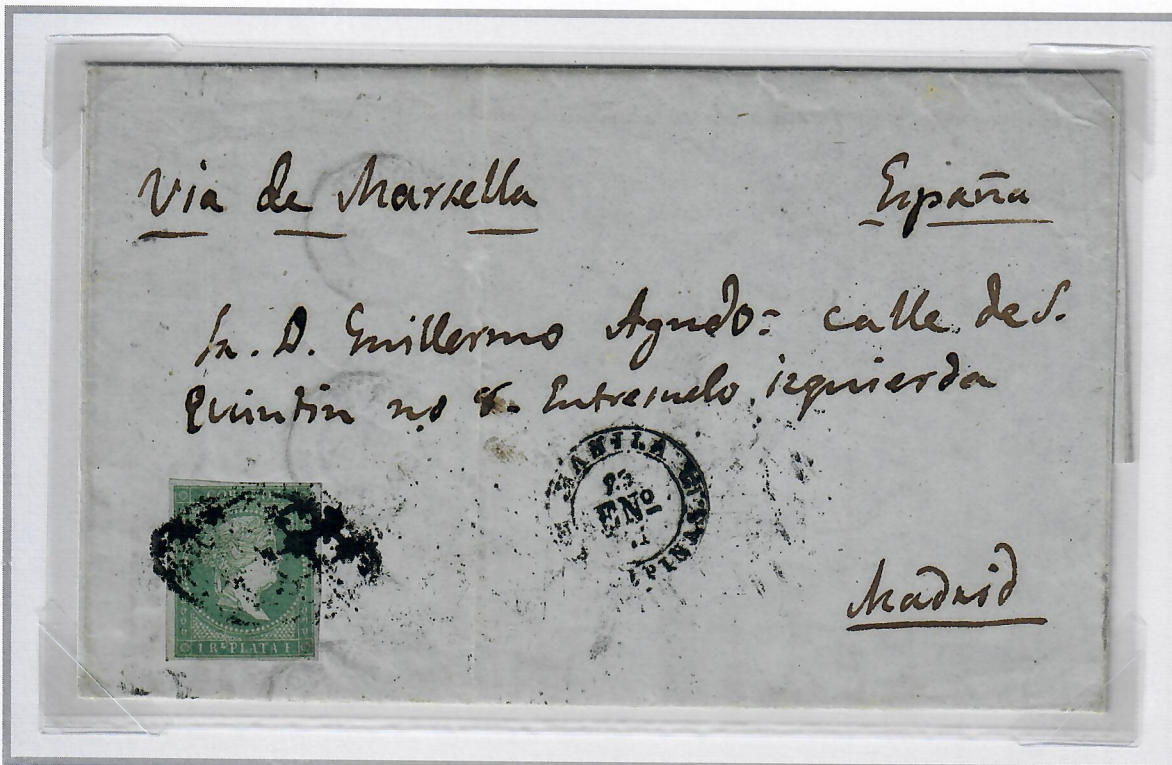 Via de Marsella
España
Sr. D. Guillermo Agudo: calle de S.
Quintin no 8. Entresuelo izquierda
MANILA
25
ENO
Madrid
1 RL PLATA F